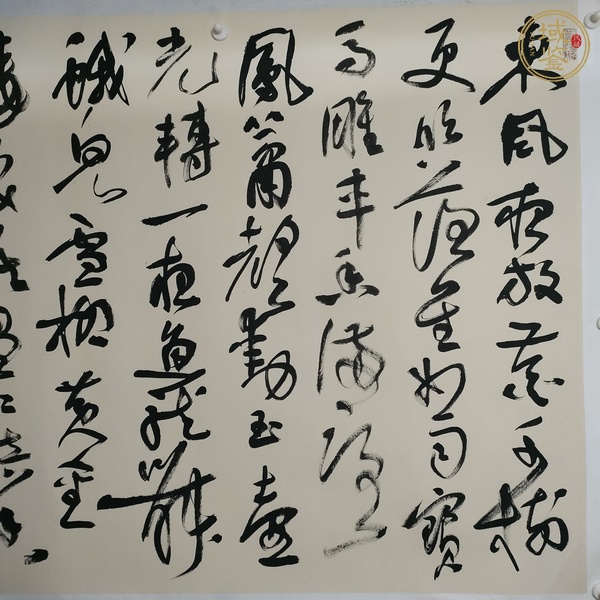 東風夜放花千樹
更吹落星如雨寶
馬雕車香滿路
鳳簫聲動玉壺
光轉一夜魚龍舞
蛾兒雪柳黃金
域鉴